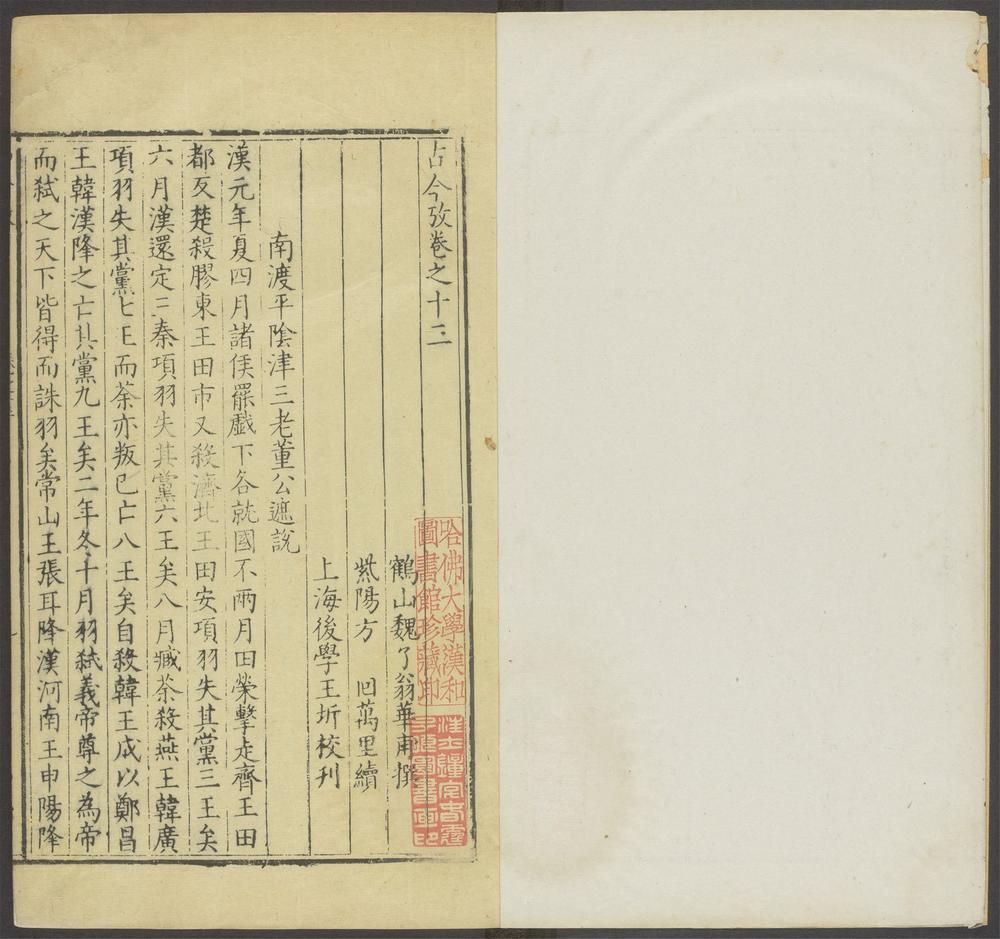 古今攷卷之十三
鶴山魏了翁華甫撰
紫陽方 回萬里續
上海後學王圻校刊
南渡平陰津三老董公遮說
漢元年夏四月諸侯罷戲下各就國不兩月田榮擊走齊王田
都反楚殺膠東王田市又殺濟北王田安項羽失其黨三王矣
六月漢還定三秦項羽失其黨六王矣八月臧荼殺燕王韓廣
項羽失其黨七王而荼亦叛已亡八王矣自殺韓王成以鄭昌
王韓漢降之亡其黨九王矣二年冬十月羽弒義帝尊之為帝
而弒之天下皆得而誅羽矣常山王張耳降漢河南王申陽降
哈佛大學漢和
圖書館珍藏印